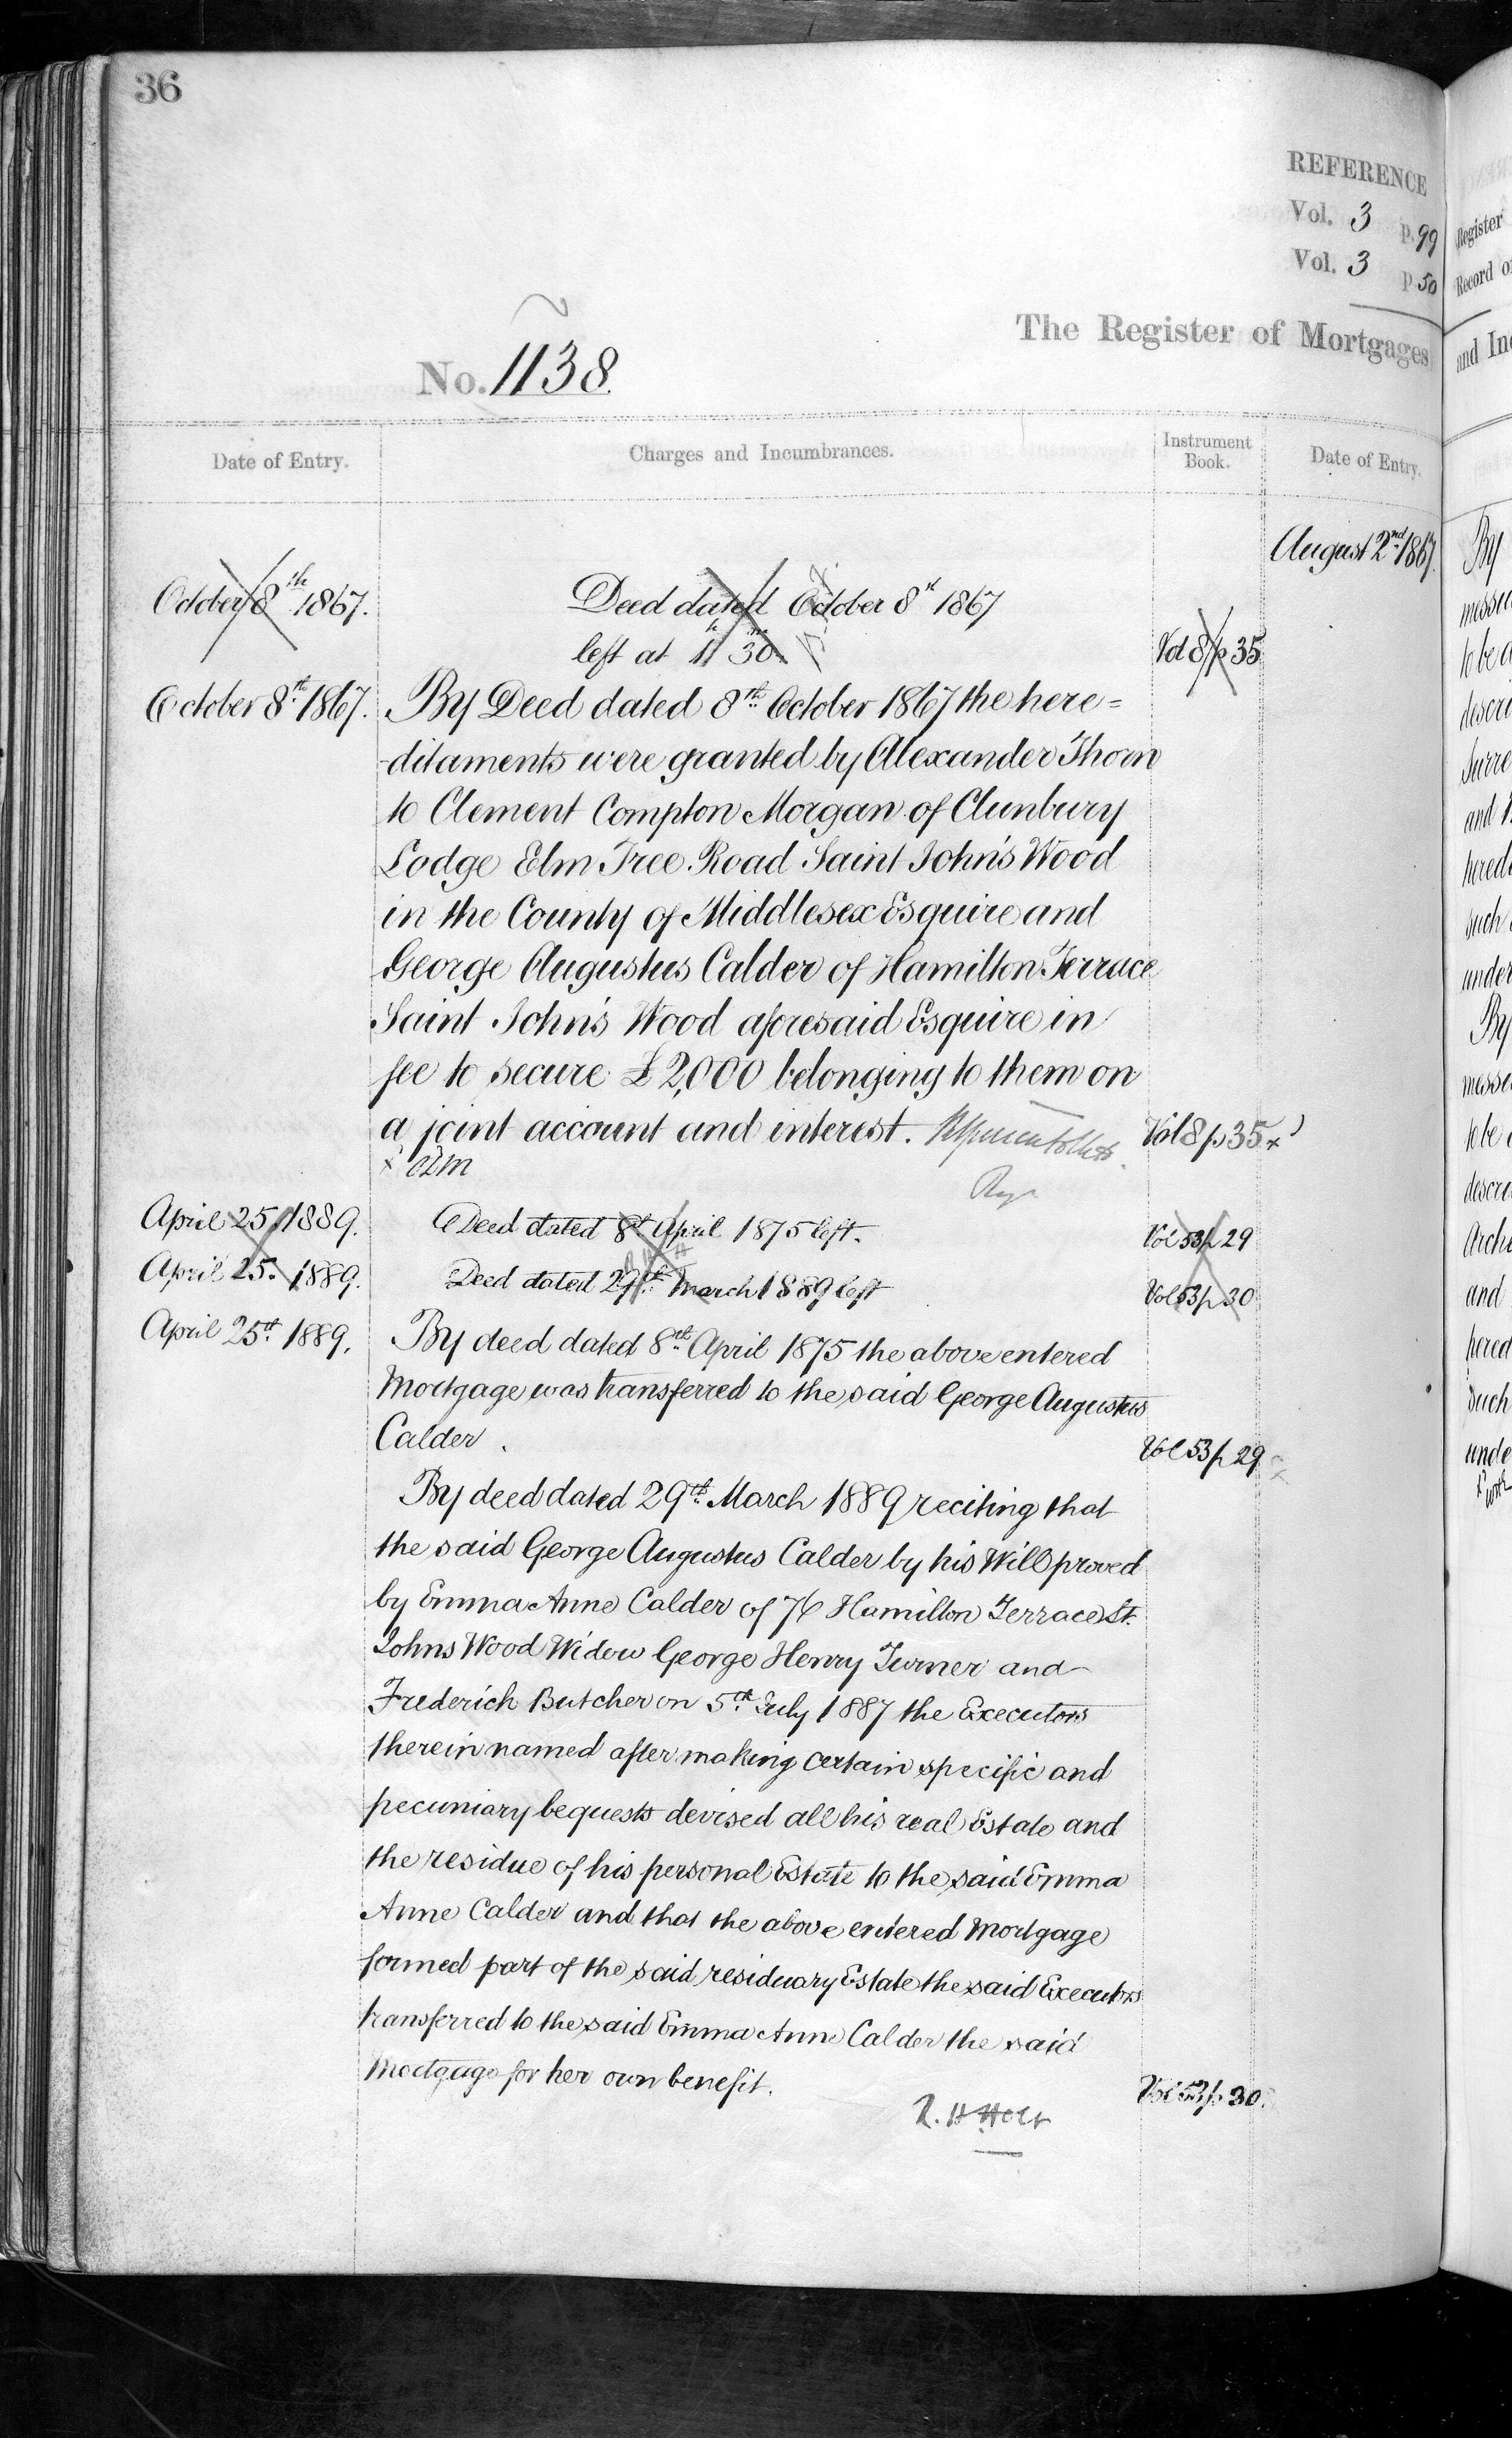 36
REFERENCE
Vol. 3 p. 99
Vol. 3 p. 50
The Register of Mortgages
No. 1138.
Date of Entry. Charges and Incumbrances. Instrument Book. Date of Entry.
August 2nd 1867.
October 8th 1867. Deed dated October 8th 1867
left at 11h 30m Vol 8 p 35
October 8th 1867. By Deed dated 8th October 1867 the here=
ditaments were granted by Alexander Thorn
to Clement Compton Morgan of Clunbury
Lodge Elm Tree Road Saint John's Wood
in the County of Middlesex Esquire and
George Augustus Calder of Hamilton Terrace
Saint John's Wood aforesaid Esquire in
fee to secure £2,000 belonging to them on
a joint account and interest. Vol 8 p 35 x
April 25. 1889. Deed dated 8th April 1875 left. Vol 53 p 29
April 25. 1889. Deed dated 29th March 1889 left Vol 53 p 30
April 25th 1889. By deed dated 8th April 1875 the above entered
Mortgage was transferred to the said George Augustus
Calder. Vol 53 p 29
By deed dated 29th March 1889 reciting that
the said George Augustus Calder by his Will proved
by Emma Anne Calder of 76 Hamilton Terrace St.
Johns Wood Widow George Henry Turner and
Frederich Butcher on 5th July 1887 the Executors
therein named after making certain specific and
pecuniary bequests devised all his real Estate and
the residue of his personal Estate to the said Emma
Anne Calder and that the above entered Mortgage
formed part of the said residuary Estate the said Executors
transferred to the said Emma Anne Calder the said
Mortgage for her own benefit. Vol 53 p 30.
R. H Holt
Register
Record o
and In
By
to be a
descri
Surre
and
hered
such
under
By
to be
descri
and
hered
such
unde